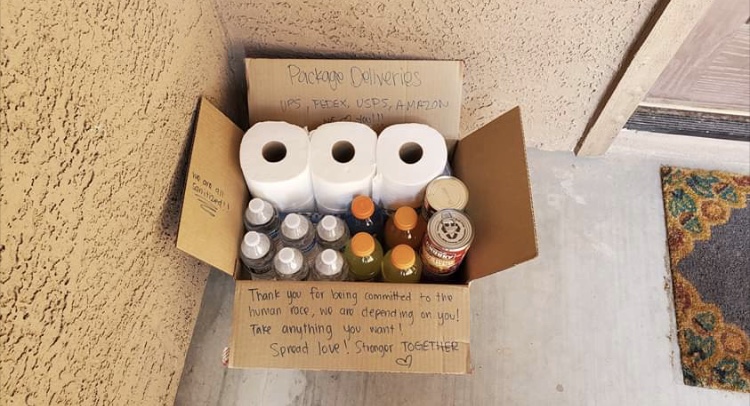 Package Deliveries
UPS, FEDEX, USPS, AMAZON
We are all
Sanitized!!
Thank you for being committed to the
human race, we are depending on you!
Take anything you want!
Spread love! Stronger TOGETHER